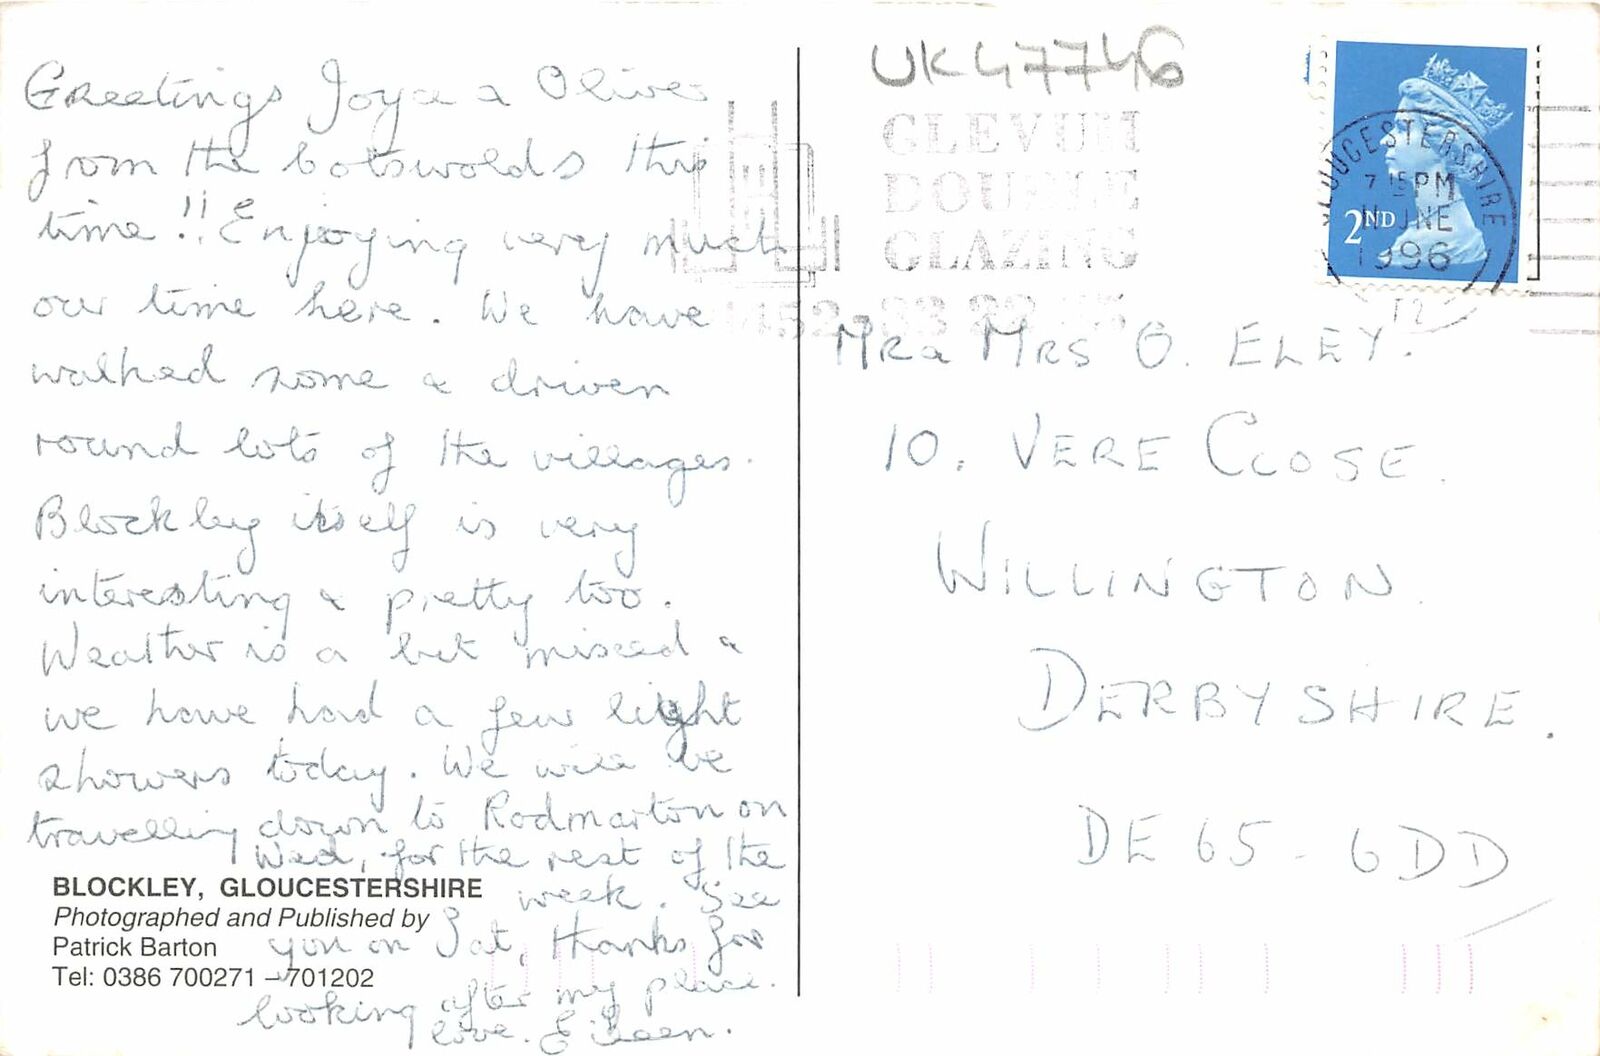 Greetings Joyce & Oliver
from the Cotswolds this
time!! Enjoying very much
our time here. We have
walked some & driven
round lots of the villages.
Blockley itself is very
interesting & pretty too.
Weather is a bit mixed &
we have had a few light
showers today. We will be
travelling down to Rodmarton on
Wed, for the rest of the
week. See
you on Sat, thanks for
looking after my place.
love. Eileen.
BLOCKLEY, GLOUCESTERSHIRE
Photographed and Published by
Patrick Barton
Tel: 0386 700271 – 701202
UK47746
GLEVUM
DOUBLE
GLAZING
GLOUCESTERSHIRE
7 15PM
11 JNE
1996
2ND
Mr & Mrs O. ELEY.
10. VERE CLOSE.
WILLINGTON.
DERBYSHIRE.
DE65-6DD